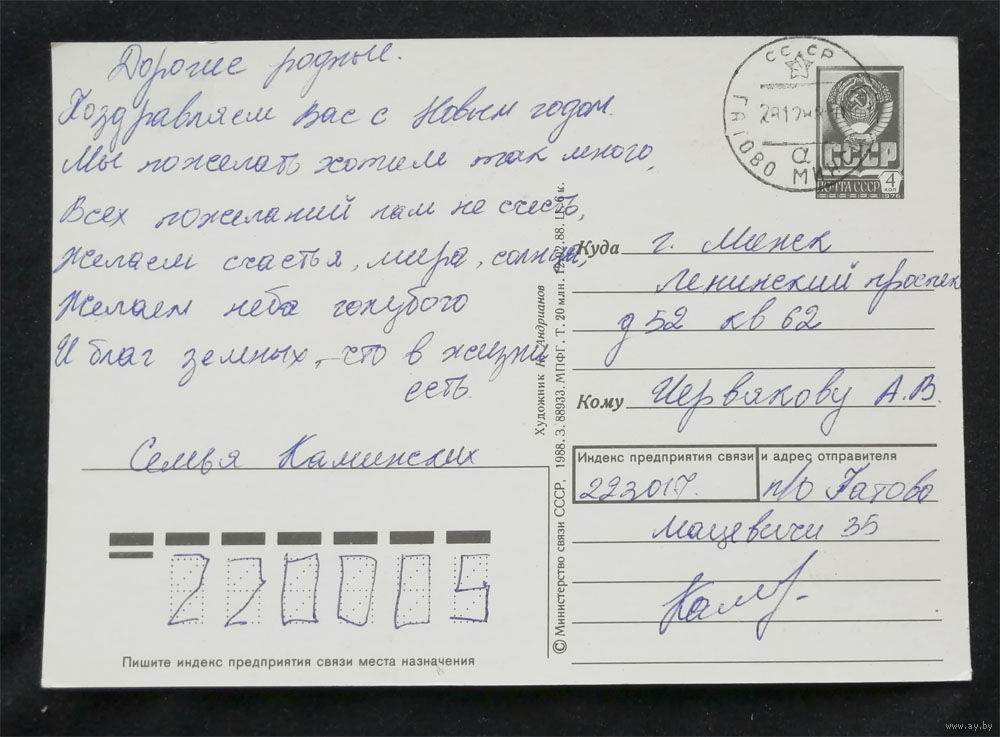 Дорогие родные.
Поздравляем Вас с Новым годом.
Мы пожелать хотим так много,
Всех пожеланий нам не счесть,
Желаем счастья, мира, солнца,
Желаем неба голубого
И благ земных, что в жизни
есть.
Семья Каминских
220005
Пишите индекс предприятия связи места назначения
© Министерство связи СССР, 1988. З. 88933. МПФГ. Т. 20 млн.
Художник Н. Андрианов
СССР
ГАТОВО
α
СССР
ПОЧТА СССР
4
КОП
1976
Куда г. Минск
Ленинский проспек
д 52 кв 62
Кому Червякову А.В.
Индекс предприятия связи и адрес отправителя
223017. п/о Гатово
Мацевичи 35
www.ay.by